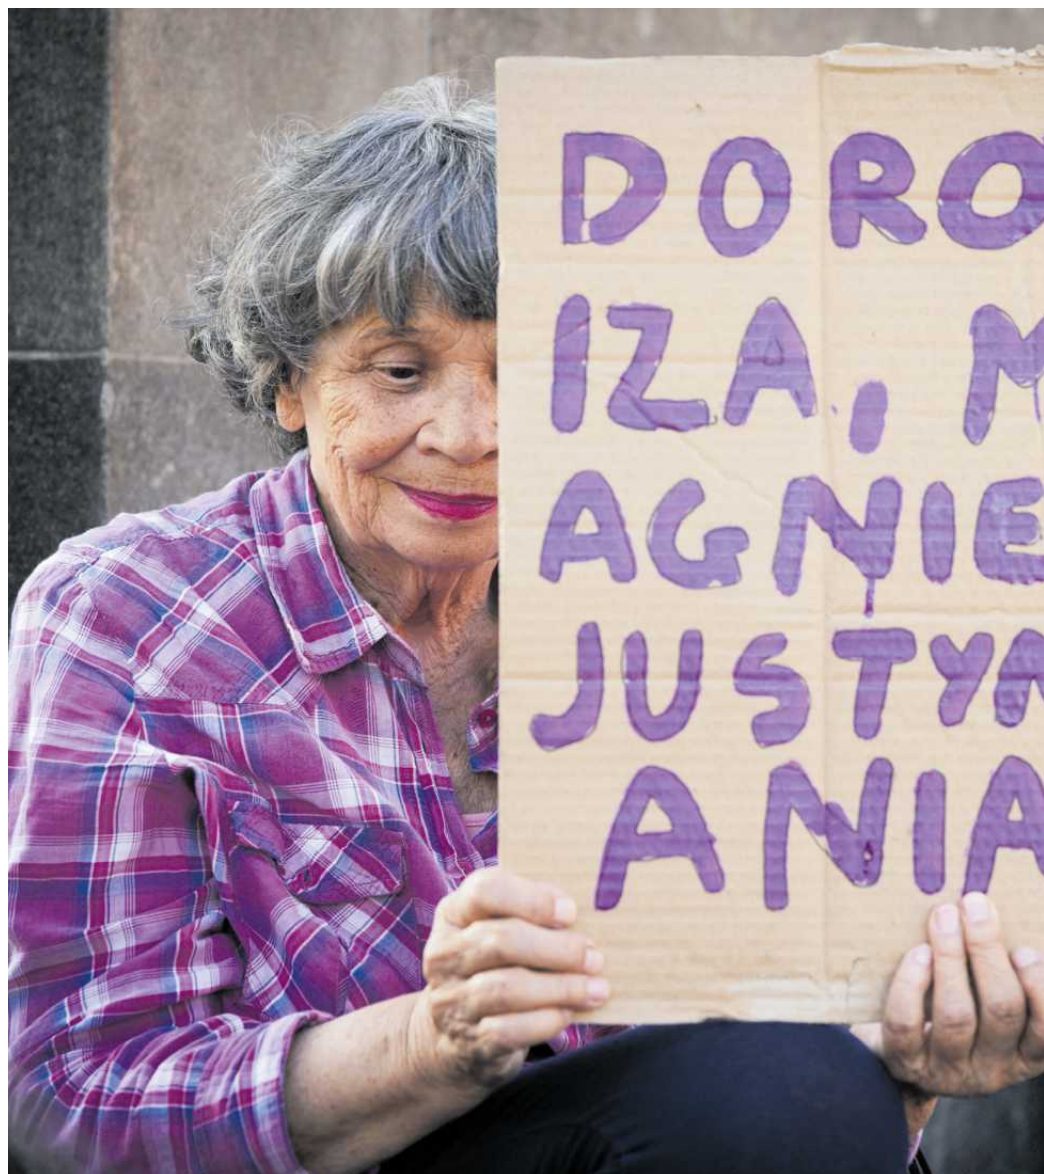 DORO
IZA, M
AGNIE
JUSTYN
ANIA